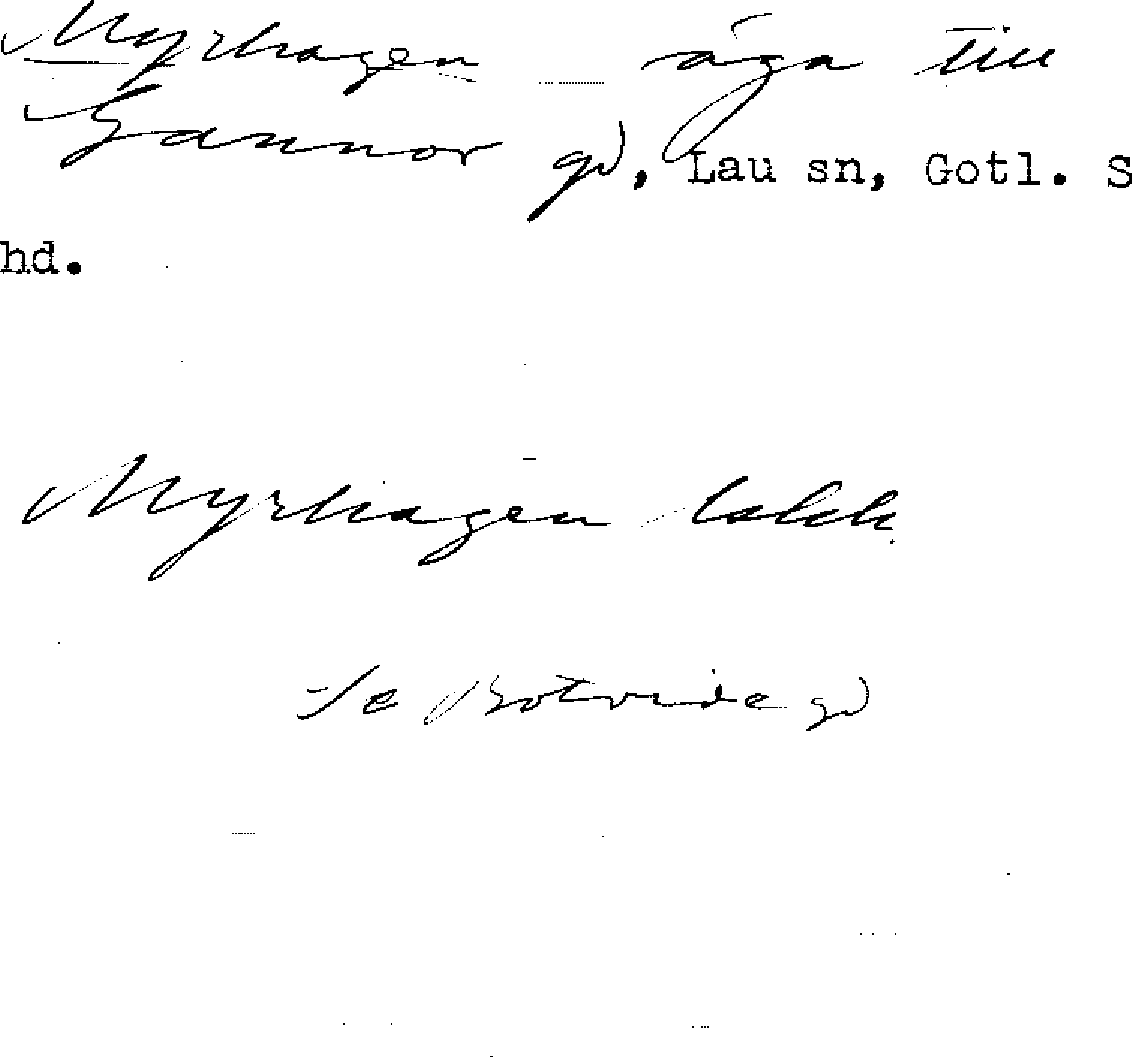 Myrhagen äga till
Gannor gd, Lau sn, Gotl. S
hd.
Myrhagen
Se Botvide gd